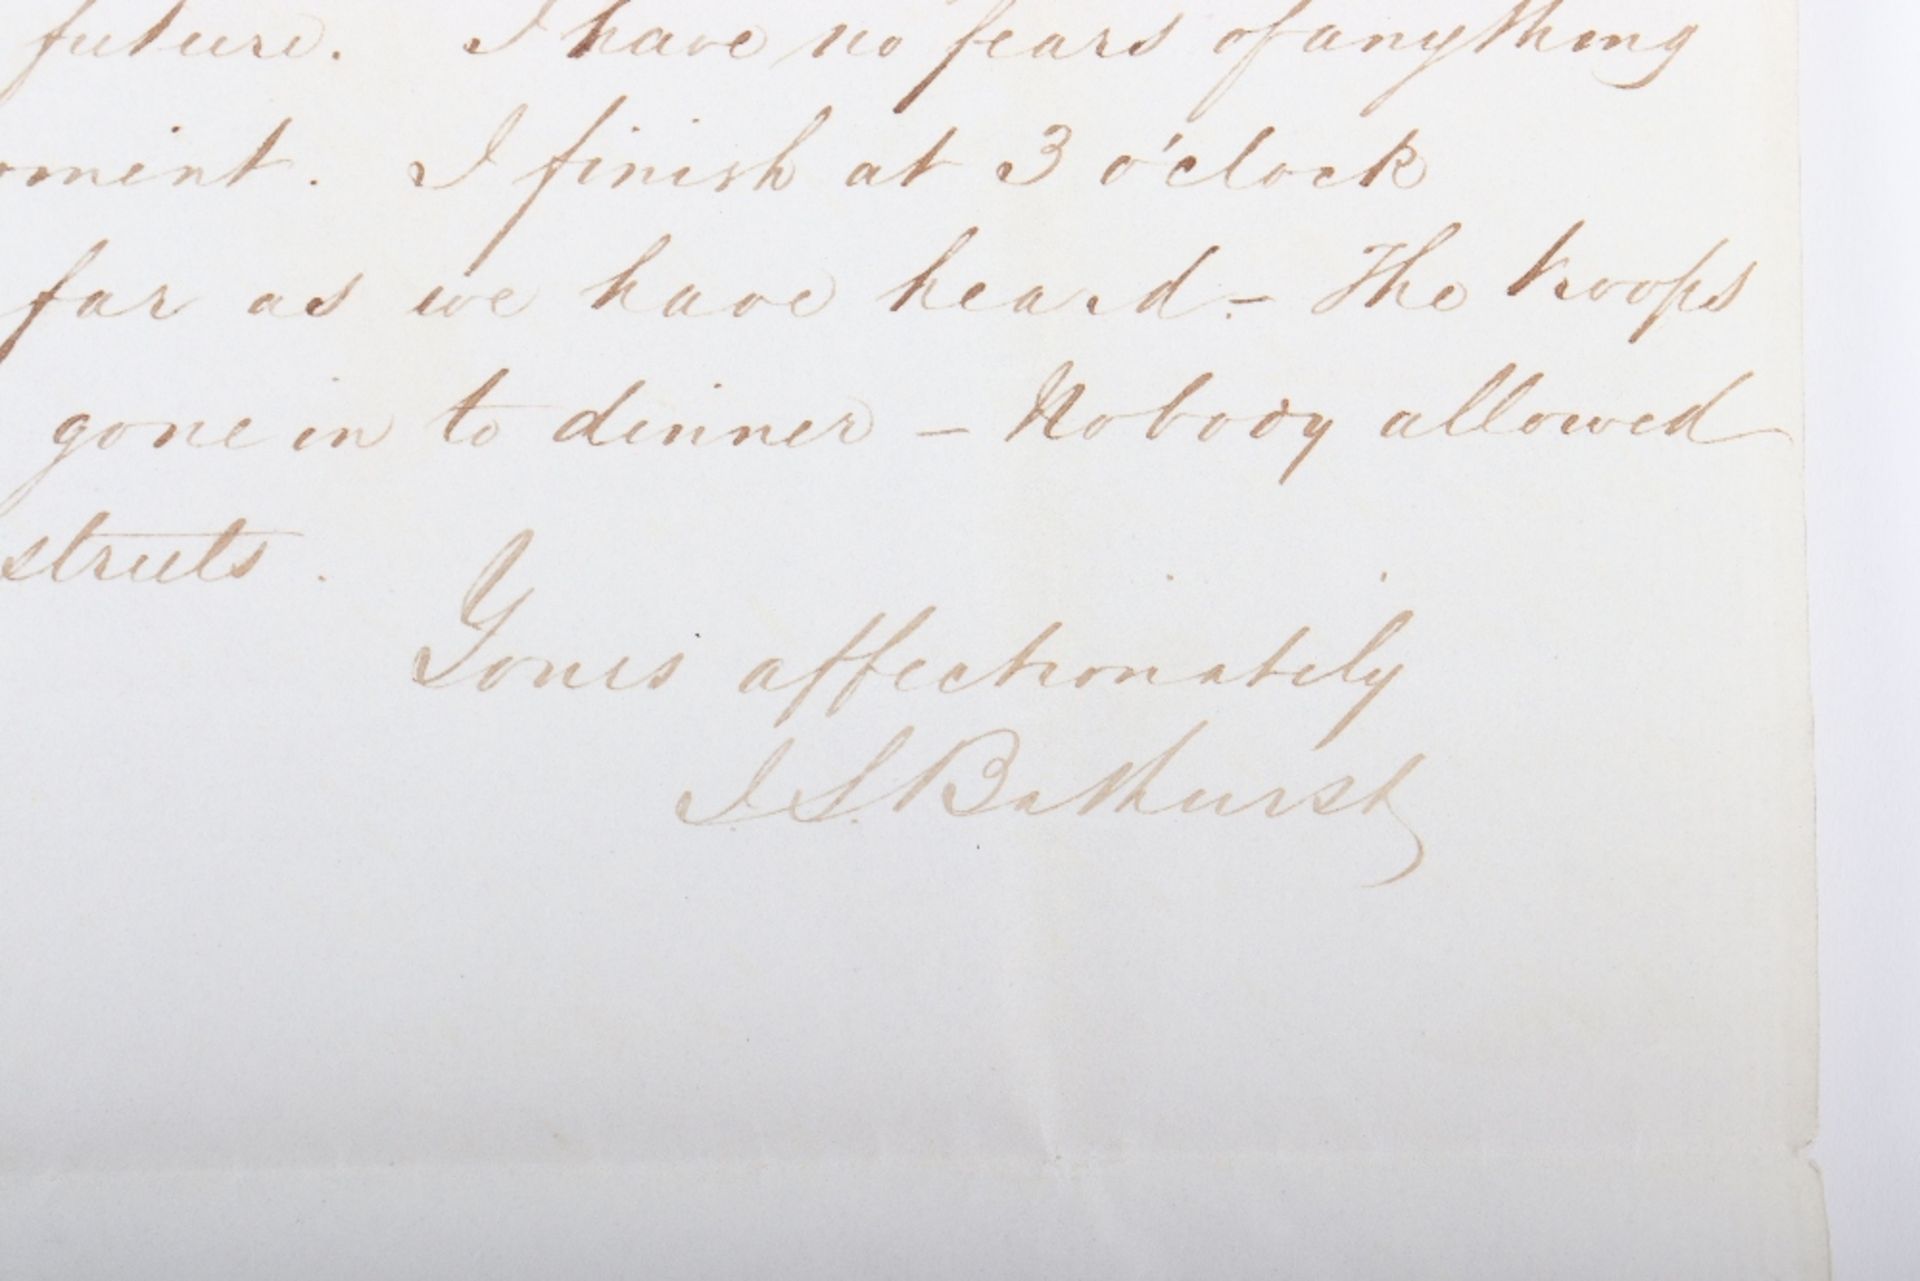 future. I have no fears of anything
oment. I finish at 3 o'clock
far as we have heard - The troops
gone in to dinner - Nobody allowed
streets.
Yours affectionately
J. S. Bathurst